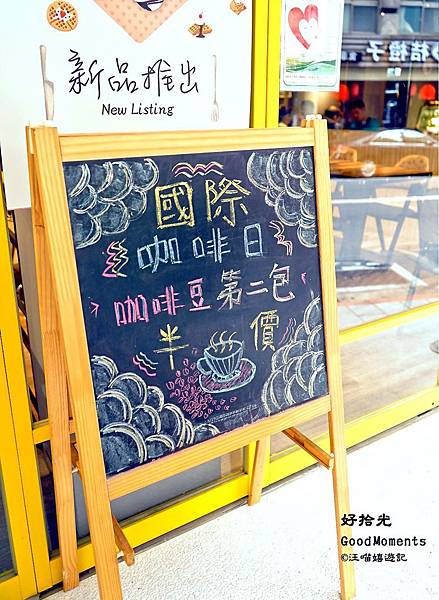 新品推出
New Listing
桔橙子
國際
咖啡日
咖啡豆第二包
半價
好拾光
GoodMoments
©汪喵嬉遊記